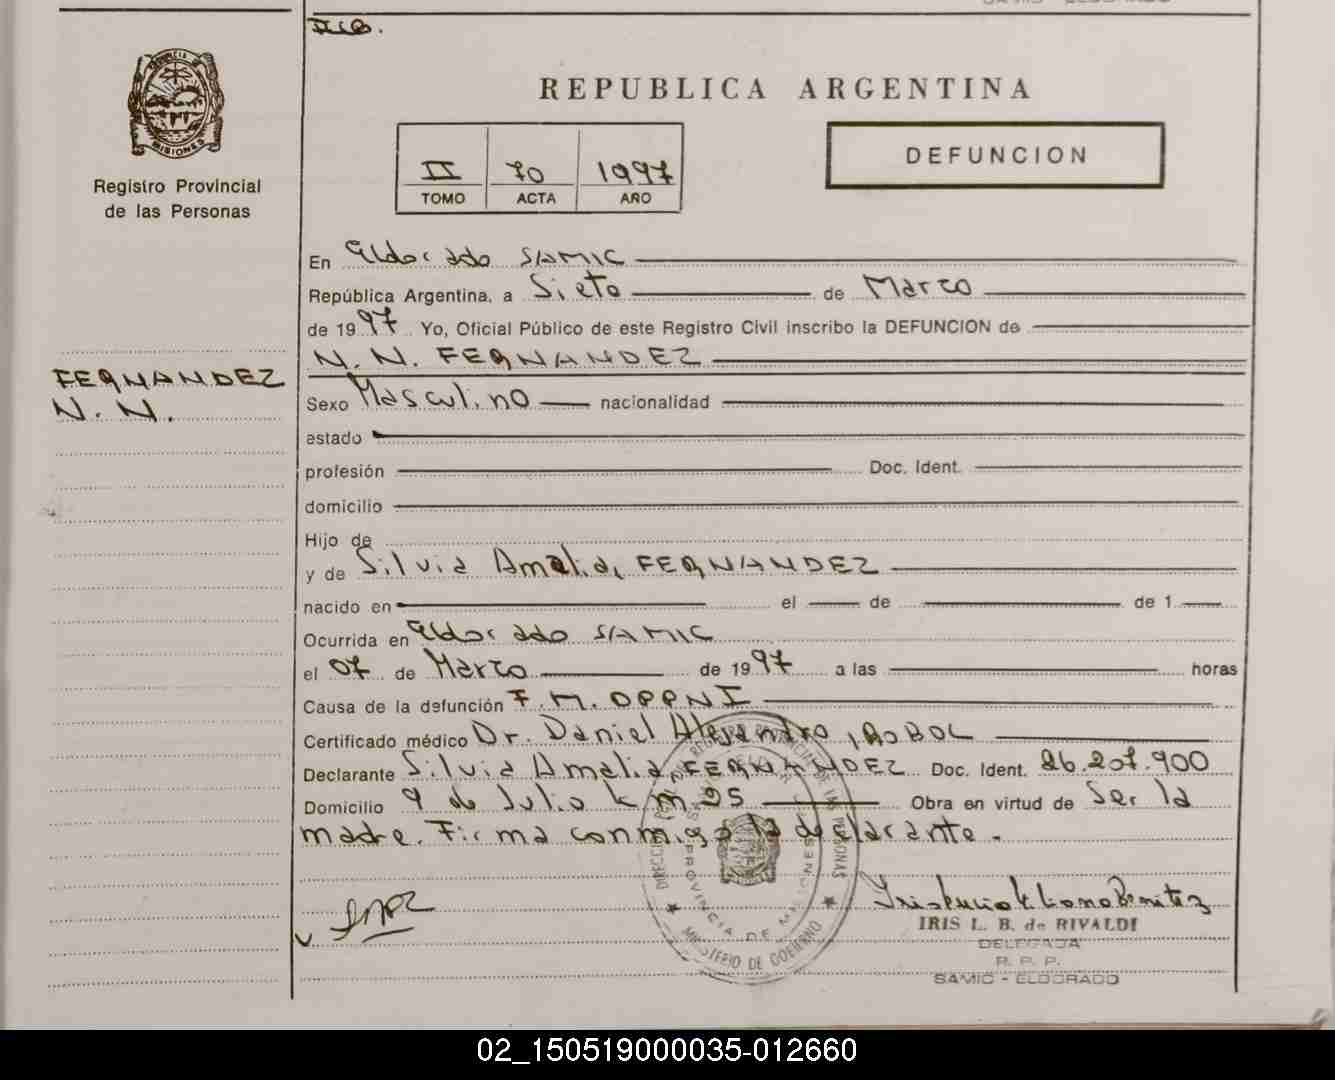 REPUBLICA ARGENTINA
PROVINCIA DE MISIONES
Registro Provincial
de las Personas
II 70 1997
TOMO ACTA AÑO
DEFUNCION
En Eldorado SAMIC
República Argentina, a Siete de Marzo
de 1997 Yo, Oficial Público de este Registro Civil inscribo la DEFUNCION de
N. N. FERNANDEZ
FERNANDEZ
N. N.
Sexo Masculino nacionalidad
estado
profesión Doc. Ident.
domicilio
Hijo de
y de Silvia Amalia FERNANDEZ
nacido en el de de 1
Ocurrida en Eldorado SAMIC
el 07 de Marzo de 1997 a las horas
Causa de la defunción F. M. OPPNI
Certificado médico Dr. Daniel Alejandro
Declarante Silvia Amalia FERNANDEZ Doc. Ident. 26.207.900
Domicilio 9 de Julio km 25 Obra en virtud de Ser la
madre. Firma conmigo la declarante.
DIRECCION REGISTRO PROVINCIAL DE LAS PERSONAS
PROVINCIA DE MISIONES
MINISTERIO DE GOBIERNO
IRIS L. B. de RIVALDI
DELEGADA
R. P. P.
SAMIC - ELDORADO
02_150519000035-012660